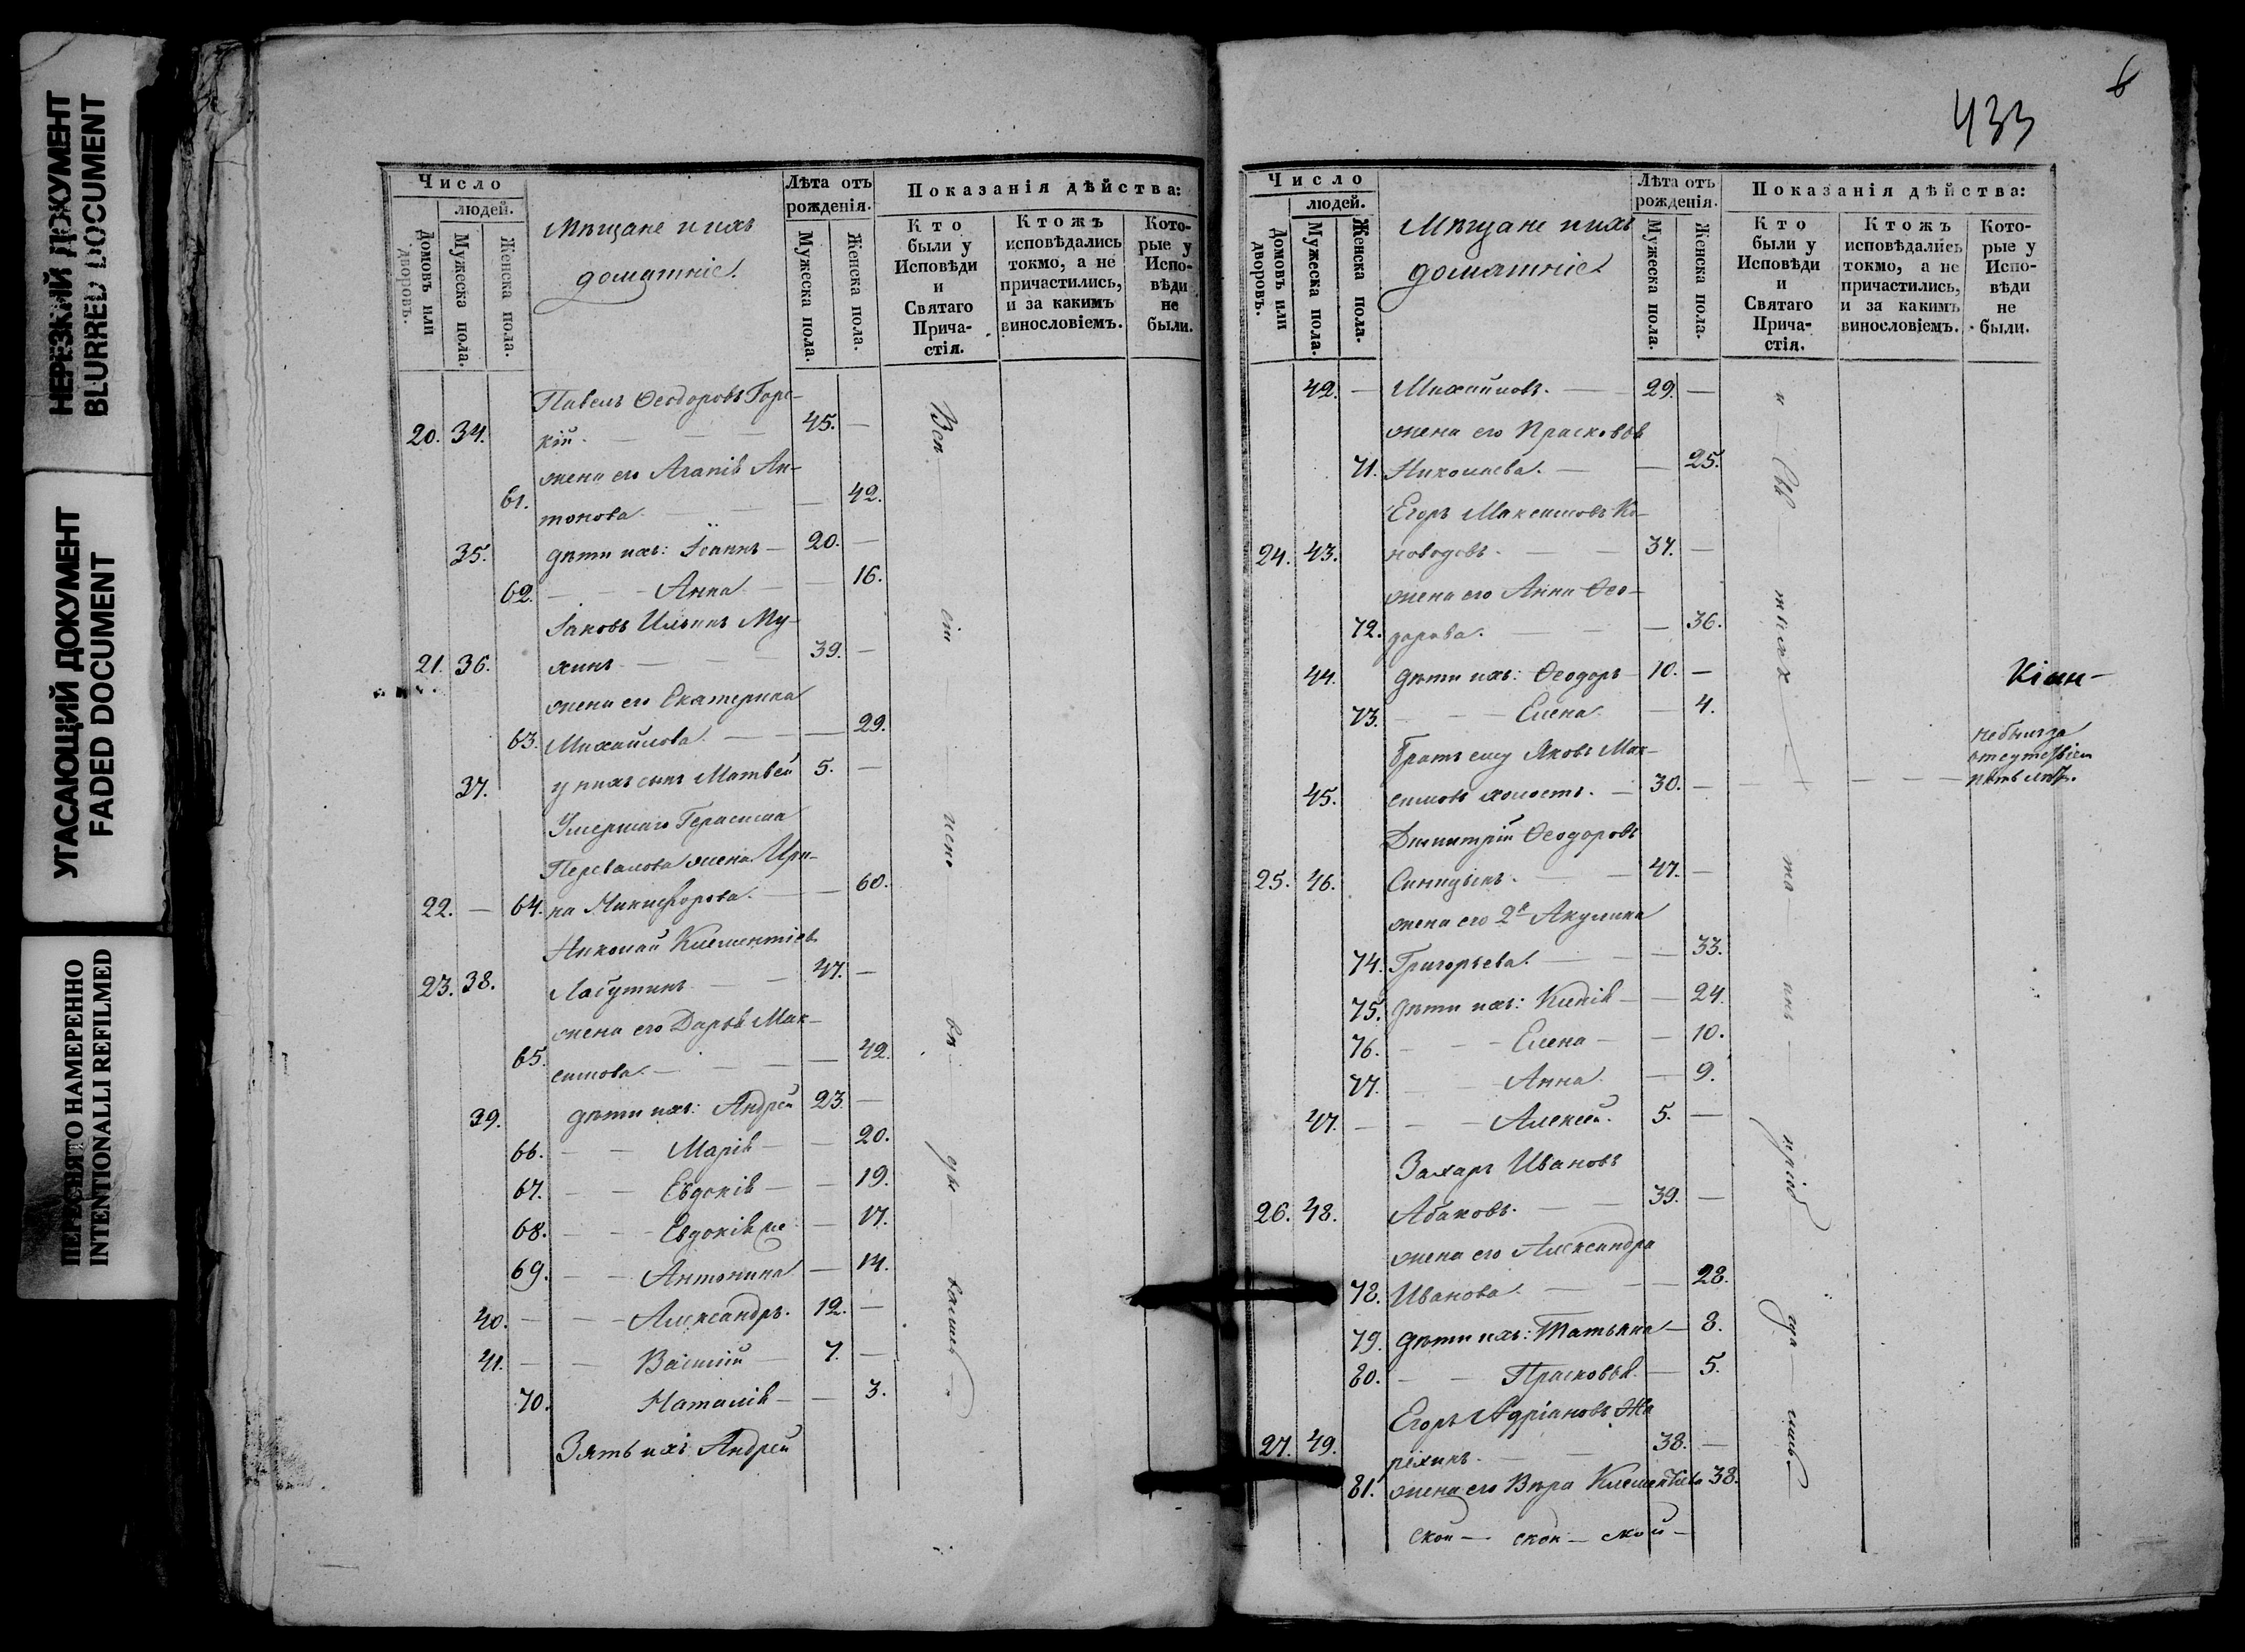 НЕРЕЗКИЙ ДОКУМЕНТ
BLURRED DOCUMENT
УГАСАЮЩИЙ ДОКУМЕНТ
FADED DOCUMENT
ПЕРЕСНЯТО НАМЕРЕННО
INTENTIONALLI REFILMED
Число
людей.
Домовъ или дворовъ.
Мужеска пола.
Женска пола.
Мѣщане и ихъ
домашніе.
Лѣта отъ рожденія.
Мужеска пола.
Женска пола.
Показанія дѣйства:
Кто были у Исповѣди и Святаго Причастія.
Ктожъ исповѣдались токмо, а не причастились, и за какимъ винословіемъ.
Которые у Исповѣди не были.
Павелъ Ѳеодоровъ Горс-
20. 34. кій. — 45. —
жена его Агапія Ан-
61. тонова — — 42.
35. дѣти ихъ: Іоаннъ — 20. —
62. — Анна — — 16.
Іаковъ Ильинъ Му-
21. 36. хинъ — 39. —
жена его Екатерина
63. Михайлова. — — 29.
37. у нихъ сынъ Матвей 5. —
Умершаго Герасима
Перевалова жена Ири-
22. — 64. на Никифорова. — — 60.
Николай Клементіевъ
23. 38. Лабутинъ — 47. —
жена его Дарья Мак-
65. симова. — — 42.
39. дѣти ихъ: Андрей 23. —
66. — — Марія — — 20.
67. — — Евдокія — — 19.
68. — — Евдокія — 17.
69. — — Антонина — 14.
40. — — Александръ. 12. —
41. — — Василій — 7. —
70. Наталія — — 3.
Зять ихъ Андрей
433
6
Число
людей.
Домовъ или дворовъ.
Мужеска пола.
Женска пола.
Мѣщане и ихъ
домашніе.
Лѣта отъ рожденія.
Мужеска пола.
Женска пола.
Показанія дѣйства:
Кто были у Исповѣди и Святаго Причастія.
Ктожъ исповѣдались токмо, а не причастились, и за какимъ винословіемъ.
Которые у Исповѣди не были.
42. — Михайловъ. — 29. —
жена его Прасковья
71. Николаева. — — 25.
Егоръ Максимовъ Ко-
24. 43. новодовъ. — 37. —
жена его Анна Ѳео-
72. дорова. — — 36.
44. дѣти ихъ: Ѳеодоръ — 10. —
73. — — Елена — 4.
Братъ ему Яковъ Мак-
45. симовъ холостъ. — 30. —
не былъ за
отсутствіем
Димитрій Ѳеодоровъ
25. 46. Синицынъ. — 47. —
жена его 2я Акулина
74. Григорьева. — — 33.
75. дѣти ихъ: — — 24.
76. — — Елена — — 10.
77. — — Анна. — 9.
47. — — Алексей. 5. —
Захаръ Ивановъ
26. 48. Абаковъ. — 39. —
жена его Александра
78. Иванова. — — 28.
79. дѣти ихъ: Татьяна — 8.
80. — — Прасковья. — 5.
Егоръ Адріановъ
27. 49. — 38. —
81. жена его Вѣра Клементьева 38.